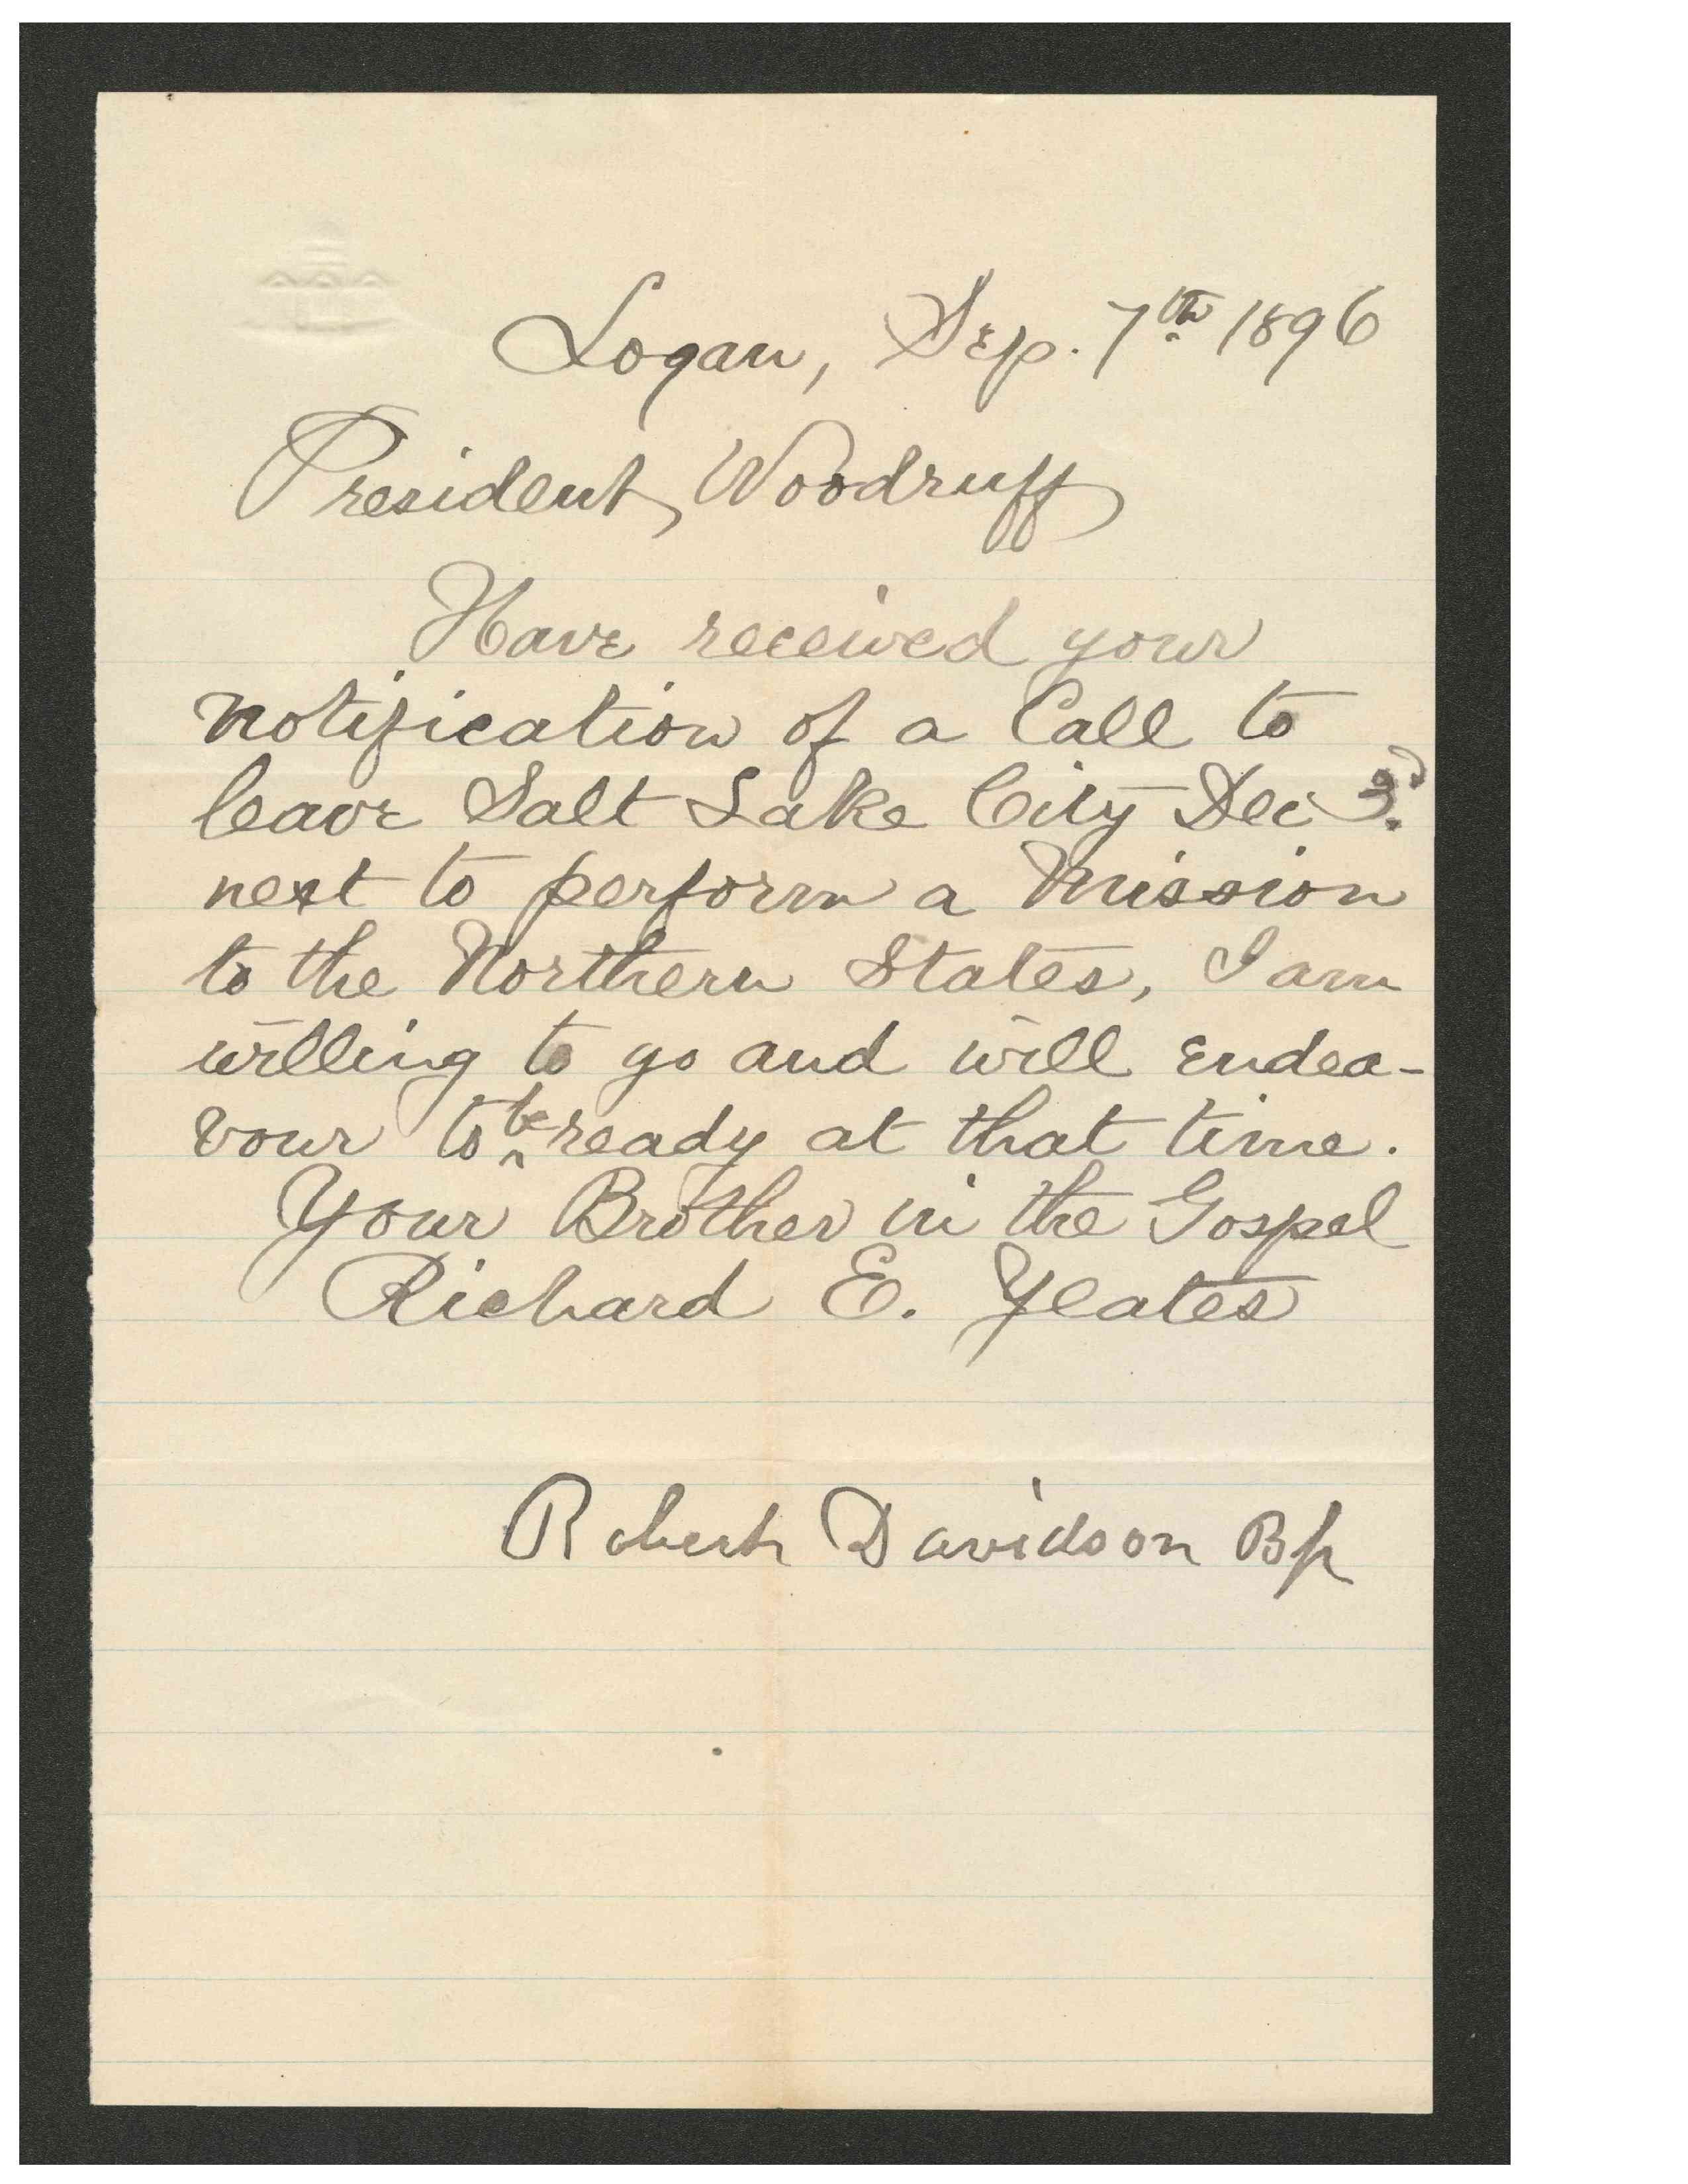 Logan, Sep. 7th 1896
President, Woodruff
Have received your
notification of a Call to
leave Salt Lake City Dec 3d
next to perform a Mission
to the Northern States, I am
willing to go and will endea-
vour to be ready at that time.
Your Brother in the Gospel
Richard E. Yeates
Robert Davidson Bp